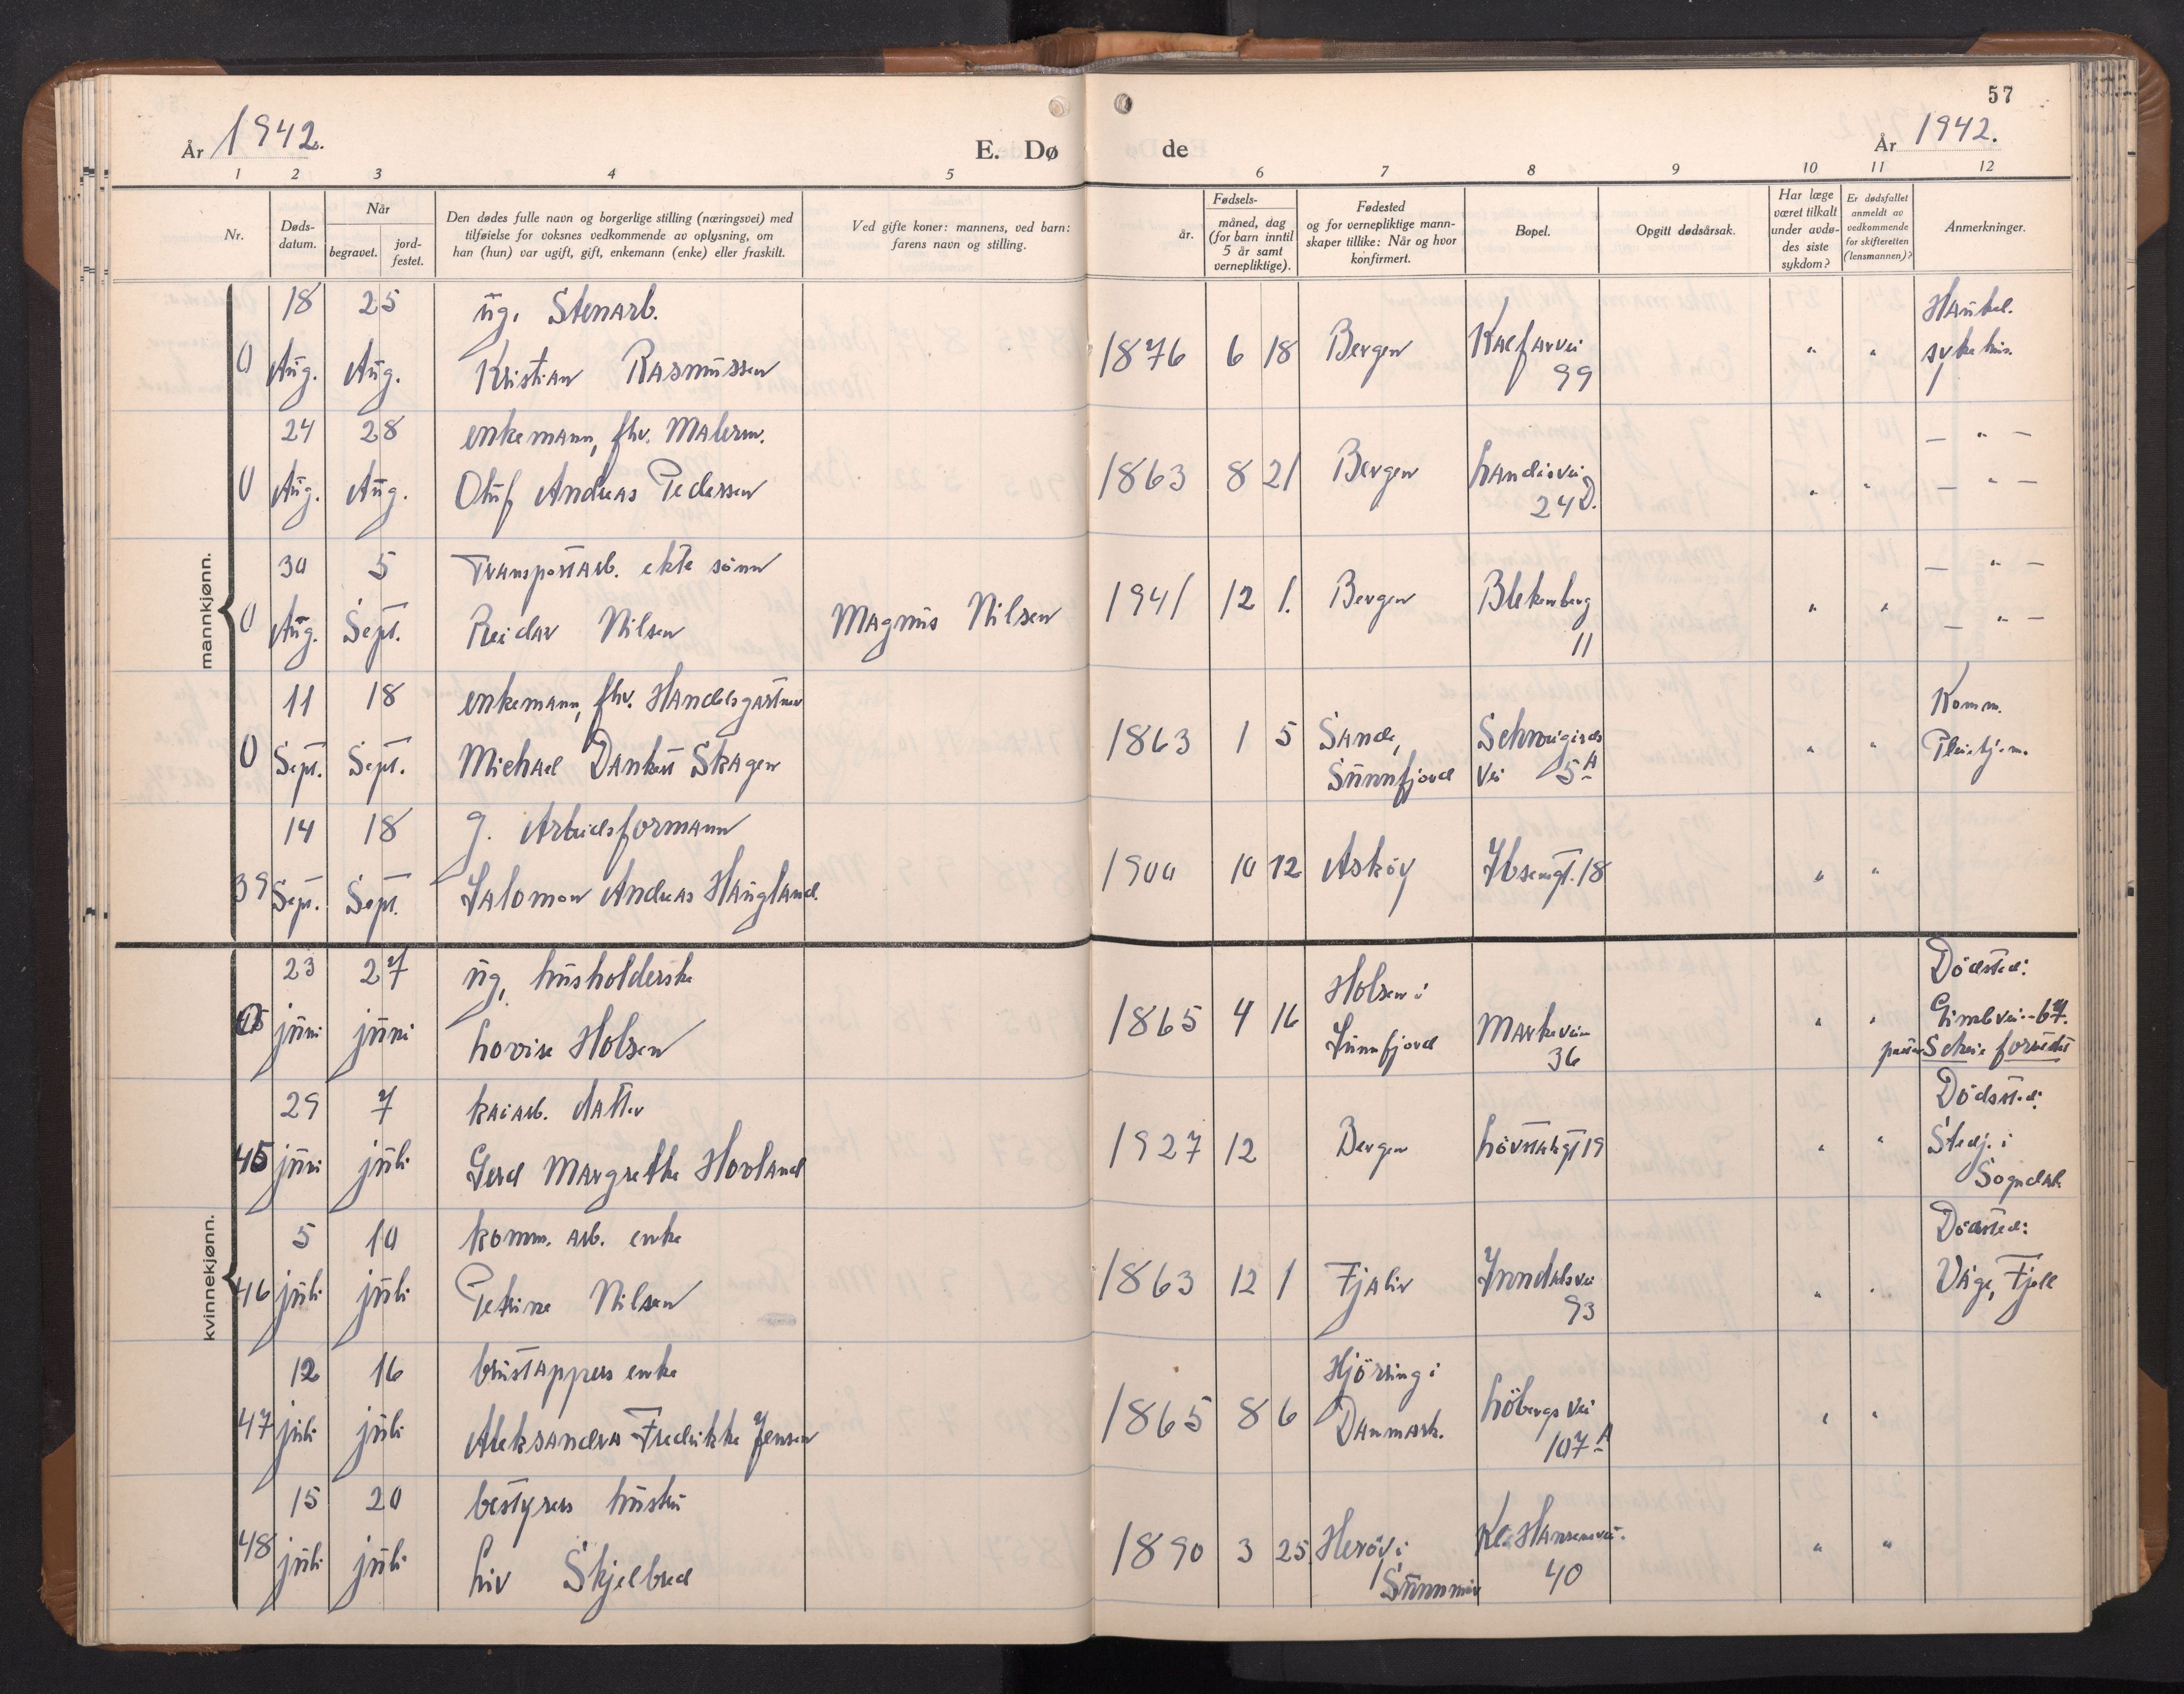 57
År 1942.
E. Dø de
År 1942.
1 2 3 4 5 6 7 8 9 10 11 12
Nr.
Døds-
datum.
Når
begravet.
jord-
festet.
Den dødes fulle navn og borgerlige stilling (næringsvei) med
tilføielse for voksnes vedkommende av oplysning, om
han (hun) var ugift, gift, enkemann (enke) eller fraskilt.
Ved gifte koner: mannens, ved barn:
farens navn og stilling.
år.
Fødsels-
måned, dag
(for barn inntil
5 år samt
vernepliktige).
Fødested
og for vernepliktige mann-
skaper tillike: Når og hvor
konfirmert.
Bopel.
Opgitt dødsårsak.
Har læge
været tilkalt
under avdø-
des siste
sykdom?
Er dødsfallet
anmeldt av
vedkommende
for skifteretten
(lensmannen)?
Anmerkninger.
mannkjønn.
18 25 ug. Stenarb. Haukel.
0 Aug. Aug. Kristian Rasmussen 1876 6 18 Bergen Kalfarvei " " sykehus.
99
24 28 enkemann, fhv. Malerm. — " —
0 Aug. Aug. Oluf Andreas Pedersen 1863 8 21 Bergen Landåsvei " " — " —
24 D.
30 5 Transportarb. ekte sönn — " —
0 Aug. Sept. Reidar Nilsen Magnus Nilsen 1941 12 1. Bergen Blekenberg " " — " —
11
11 18 enkemann, fhv. Handelsgartner Komm.
0 Sept. Sept. Michael Dankert Skagen 1863 1 5 Sande, " " Pleiehjem.
Sunnfjord vei 5A
14 18 g. Arbeidsformann
39 Sept. Sept. Salomon Andreas Haugland. 1900 10 12 Asköy Ibsensgt. 18 " "
kvinnekjønn.
23 27 ug, husholderske Holsen i Dödsted:
juni juni Lovise Holsen 1865 4 16 Sunnfjord Markeveien " " 67.
36 Scheie forrettet
29 7 kaiarb. datter Dödsted:
45 juni juli Gerd Margrethe Hovland 1927 12 Bergen Lövstakgt 19 " " Stedj. i
Sogndal.
5 10 komm. arb. enke Dödsted:
46 juli juli Petrine Nilsen 1863 12 1 Fjaler Inndalsvei " " Våge, Fjell
93
12 16 brustappers enke Hjörring i
47 juli juli Aleksandra Fredrikke Jensen 1865 8 6 Danmark. Löbergsvei " "
107 A
15 20 bestyrers hustru
48 juli juli Liv Skjelbred 1890 3 25 Heröy i Kl. Hansensvei. " "
Sunnmör 40